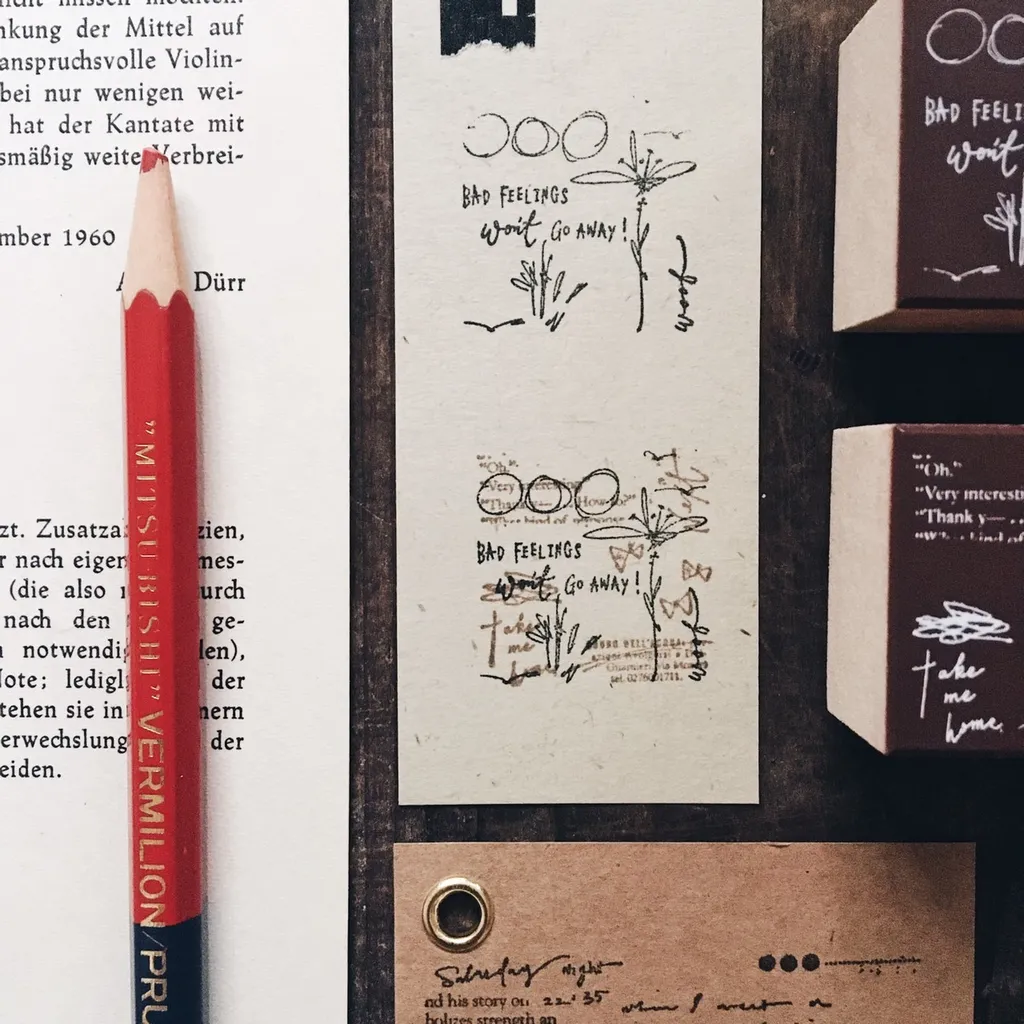 nkung der Mittel auf
anspruchsvolle Violin-
bei nur wenigen wei-
hat der Kantate mit
smäßig weite Verbrei-
mber 1960
Dürr
zt. Zusatza zien,
r nach eigen mes-
(die also urch
nach den ge-
notwendi den),
Note; ledigl der
tehen sie in nern
erwechslung der
eiden.
"MITSU-BISHI" VERMILION/PRU
BAD FEELINGS
won't GO AWAY!
moon
"Oh."
"Very interesting
"Thank How-to?"
kind of
BAD FEELINGS
won't GO AWAY!
take
me
moon
tel. 0276001711.
BAD FEELI
won't
"Oh."
"Very interesti
"Thank y—
kind of
take
me
home.
Saturday night
nd his story on 22:35
when I went
bolizes strength an